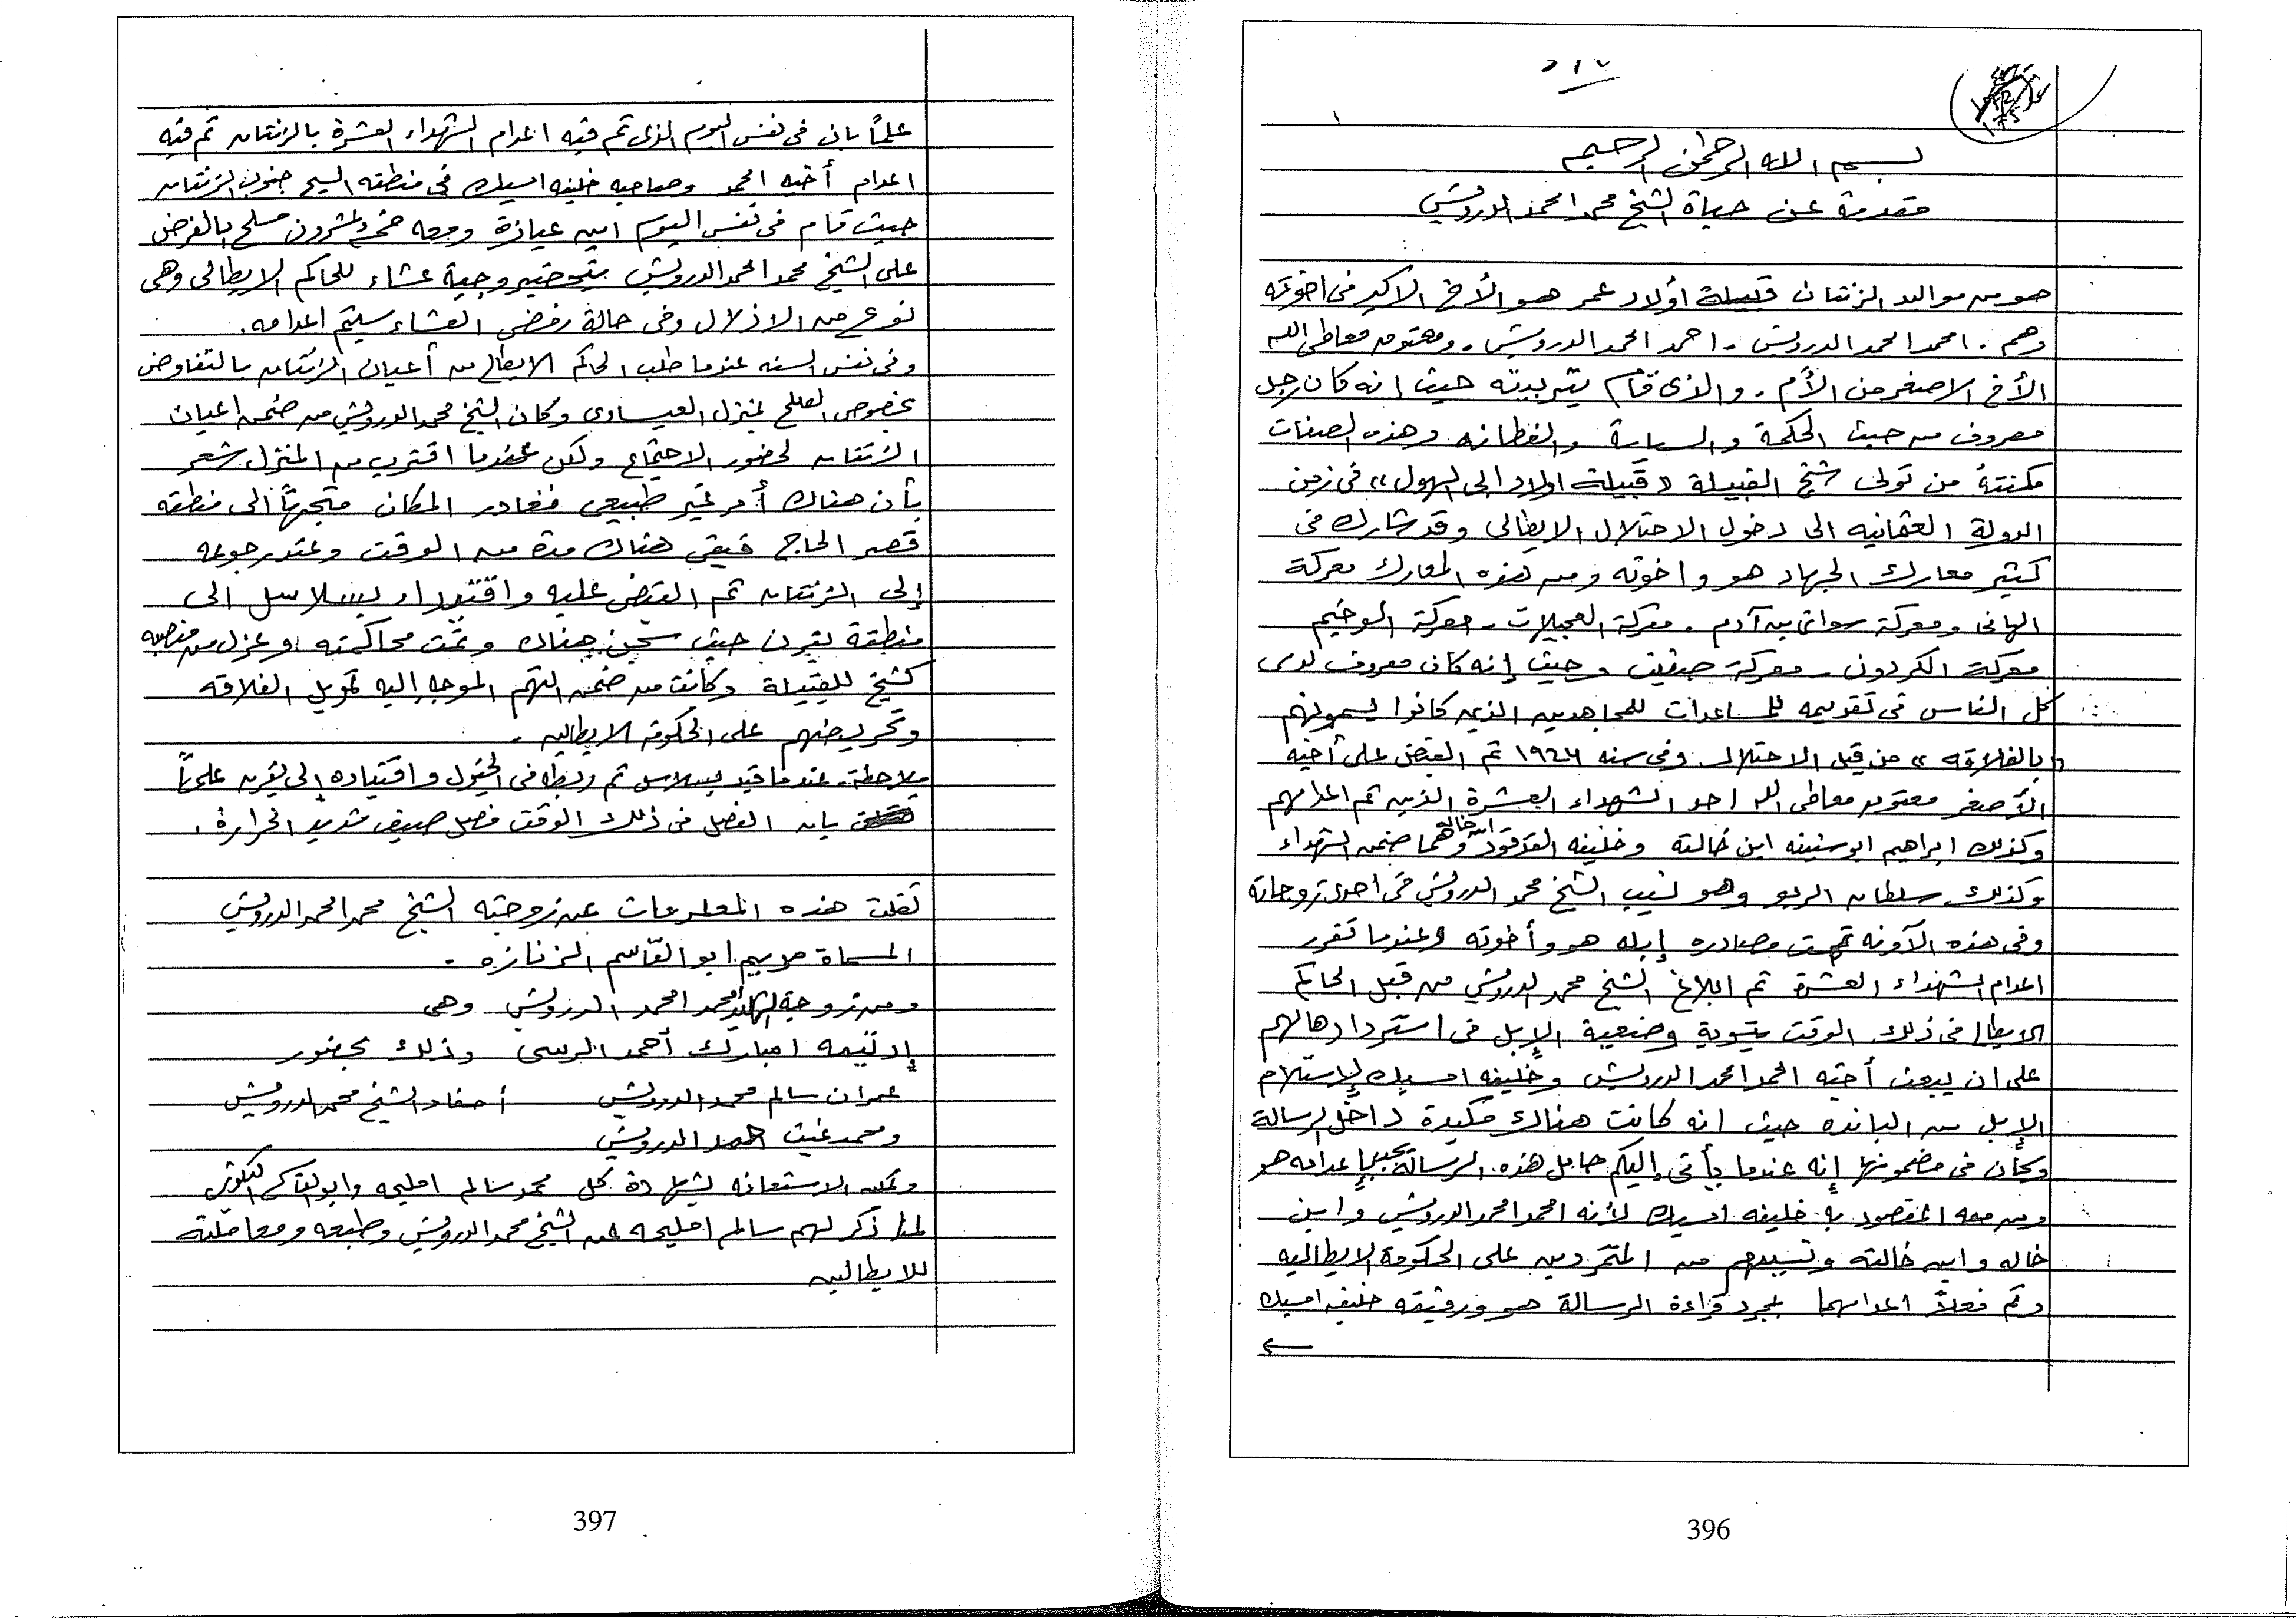 بسم الله الرحمن الرحيم
مقدمة عن حياة الشيخ محمد امحمد الدرويش
هو من مواليد الزنتان قبيلة أولاد عمر هو الأخ الاكبر في اخوته
وهم . امحمد امحمد الدرويش . احمد امحمد الدرويش . ومعتوق معاطى الله
الأخ الاصغر من الأم . والذى قام بتربيته حيث انه كان رجل
معروف من حيث الحكمة و والفطانه وهذه الصفات
مكنتهُ من تولى شيخ القبيلة « قبيلة اولاد ابى الهول » فى زمن
الدولة العثمانيه الى دخول الاحتلال الايطالى وقد شارك فى
كثير معارك الجهاد هو واخوته ومن هذه المعارك معركة
الهانى ومعركة سوانى بن آدم . معركة العجيلات . معركة الوخيم
معركة الكردون . معركة وحيث إنه كان معروف لدى
كل الناس فى تقديمه للمساعدات للمجاهدين الذين كانوا يسمونهم
« بالفلاقه » من قبل الاحتلال . وفى سنه ١٩٢٤ تم القبض على أخيه
الأصغر معتوق معاطى الله احد الشهداء العشرة الذين تم اعدامهم
وكذلك ابراهيم ابوسنينه ابن خالته وخليفه القرقود ابن خاله وهما ضمن الشهداء
وكذلك سلطان الربو وهو نسيب الشيخ محمد الدرويش فى احدى زوجاته
وفى هذه الآونه تمت مصادره إبله هو وأخوته وعندما تقرر
اعدام الشهداء العشرة تم ابلاغ الشيخ محمد الدرويش من قبل الحاكم
الايطالى فى ذلك الوقت بتسوية وضعية الإبل فى استردادها لهم
على ان يبعث أخيه امحمد امحمد الدرويش وخليفه امسيك لإستلام
الإبل من البانده حيث انه كانت هناك مكيدة داخل الرسالة
وكان فى مضمونها إنه عندما يأتى إليكم حامل هذه الرسالة يجب إعدامه هو
ومن معه المقصود به خليفه امسيك لأنه امحمد امحمد الدرويش وابن
خاله وابن خالته ونسيبهم من المتمردين على الحكومة الايطاليه
وتم فعلاً اعدامهما بمجرد قراءة الرسالة هو ورفيقه خليفه امسيك
396
علماً بان فى نفس اليوم الذى تم فيه اعدام الشهداء العشرة بالزنتان تم فيه
اعدام أخيه امحمد وصاحبه خليفه امسيك فى منطقه السيح جنوب الزنتان
حيث قام فى نفس اليوم ابن عيازة ومعه خمسة وعشرون مسلح بالفرض
على الشيخ محمد امحمد الدرويش بتحضير وجبة عشاء للحاكم الايطالى وهى
نوع من الاذلال وفى حالة رفض العشاء سيتم اعدامه .
وفى نفس السنه عندما طلب الحاكم الايطالى من أعيان الزنتان بالتفاوض
بخصوص الصلح بمنزل العيساوى وكان الشيخ محمد الدرويش من ضمن اعيان
الزنتان لحضور الاجتماع ولكن عندما اقترب من المنزل شعر
بأن هناك أمر غير طبيعى فغادر المكان متجهاً الى منطقه
قصر الحاج فبقى هناك مدة من الوقت وعند رجوعه
إلى الزنتان تم القبض عليه واقتيد بسلاسل الى
منطقة يفرن حيث سجن هناك وتمت محاكمته وعزل من منصبه
كشيخ للقبيلة وكانت من ضمن التهم الموجه إليه تمويل الفلاقه
وتحريضهم على الحكومه الايطاليه .
ملاحظة . عندما قيد بسلاسل تم ربطه فى الخيول واقتياده إلى يفرن علماً
بان الفصل فى ذلك الوقت فصل صيف شديد الحرارة .
نقلت هذه المعلومات عن زوجته الشيخ محمد امحمد الدرويش
المسماة مريم ابو القاسم الزنازه .
ومن زوجة الشهيد امحمد امحمد الدرويش وهى
إدنيمه امبارك أحمد الريسى وذلك بحضور
عمران سالم محمد الدرويش أحفاد الشيخ محمد الدرويش
ومحمد غيث احمد الدرويش
ويمكن الاستعانه بشهادة كل محمد سالم امليحه وابوالقاسم
لما ذكر لهم سالم امليحه عن الشيخ محمد الدرويش وطبعه ومعاملته
للايطاليين
397